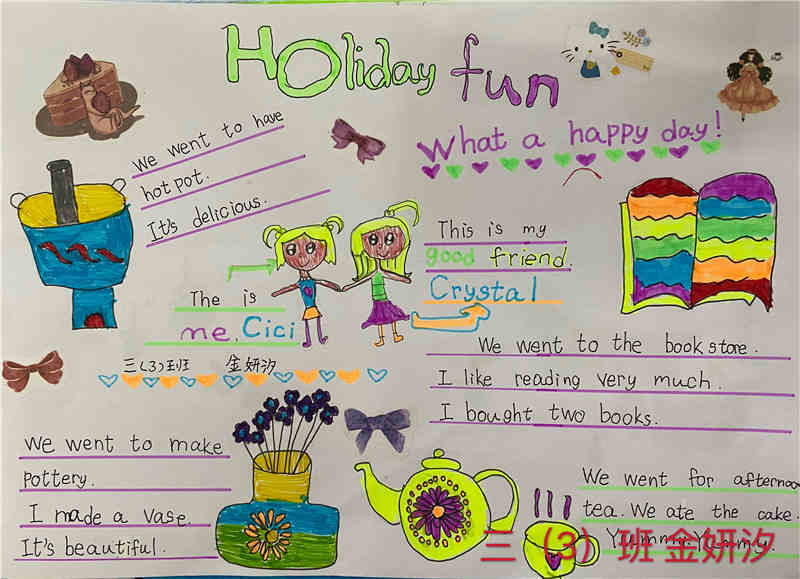 Holiday fun
What a happy day!
We went to have
hot pot.
It's delicious.
This is my
good friend.
Crystal
The is
me. Cici
三(3)班 金妍汐
We went to the book store.
I like reading very much.
I bought two books.
We went to make
pottery.
I made a vase.
It's beautiful.
We went for afternoon
tea. We ate the cake.
Yummy. Yummy.
三（3）班 金妍汐